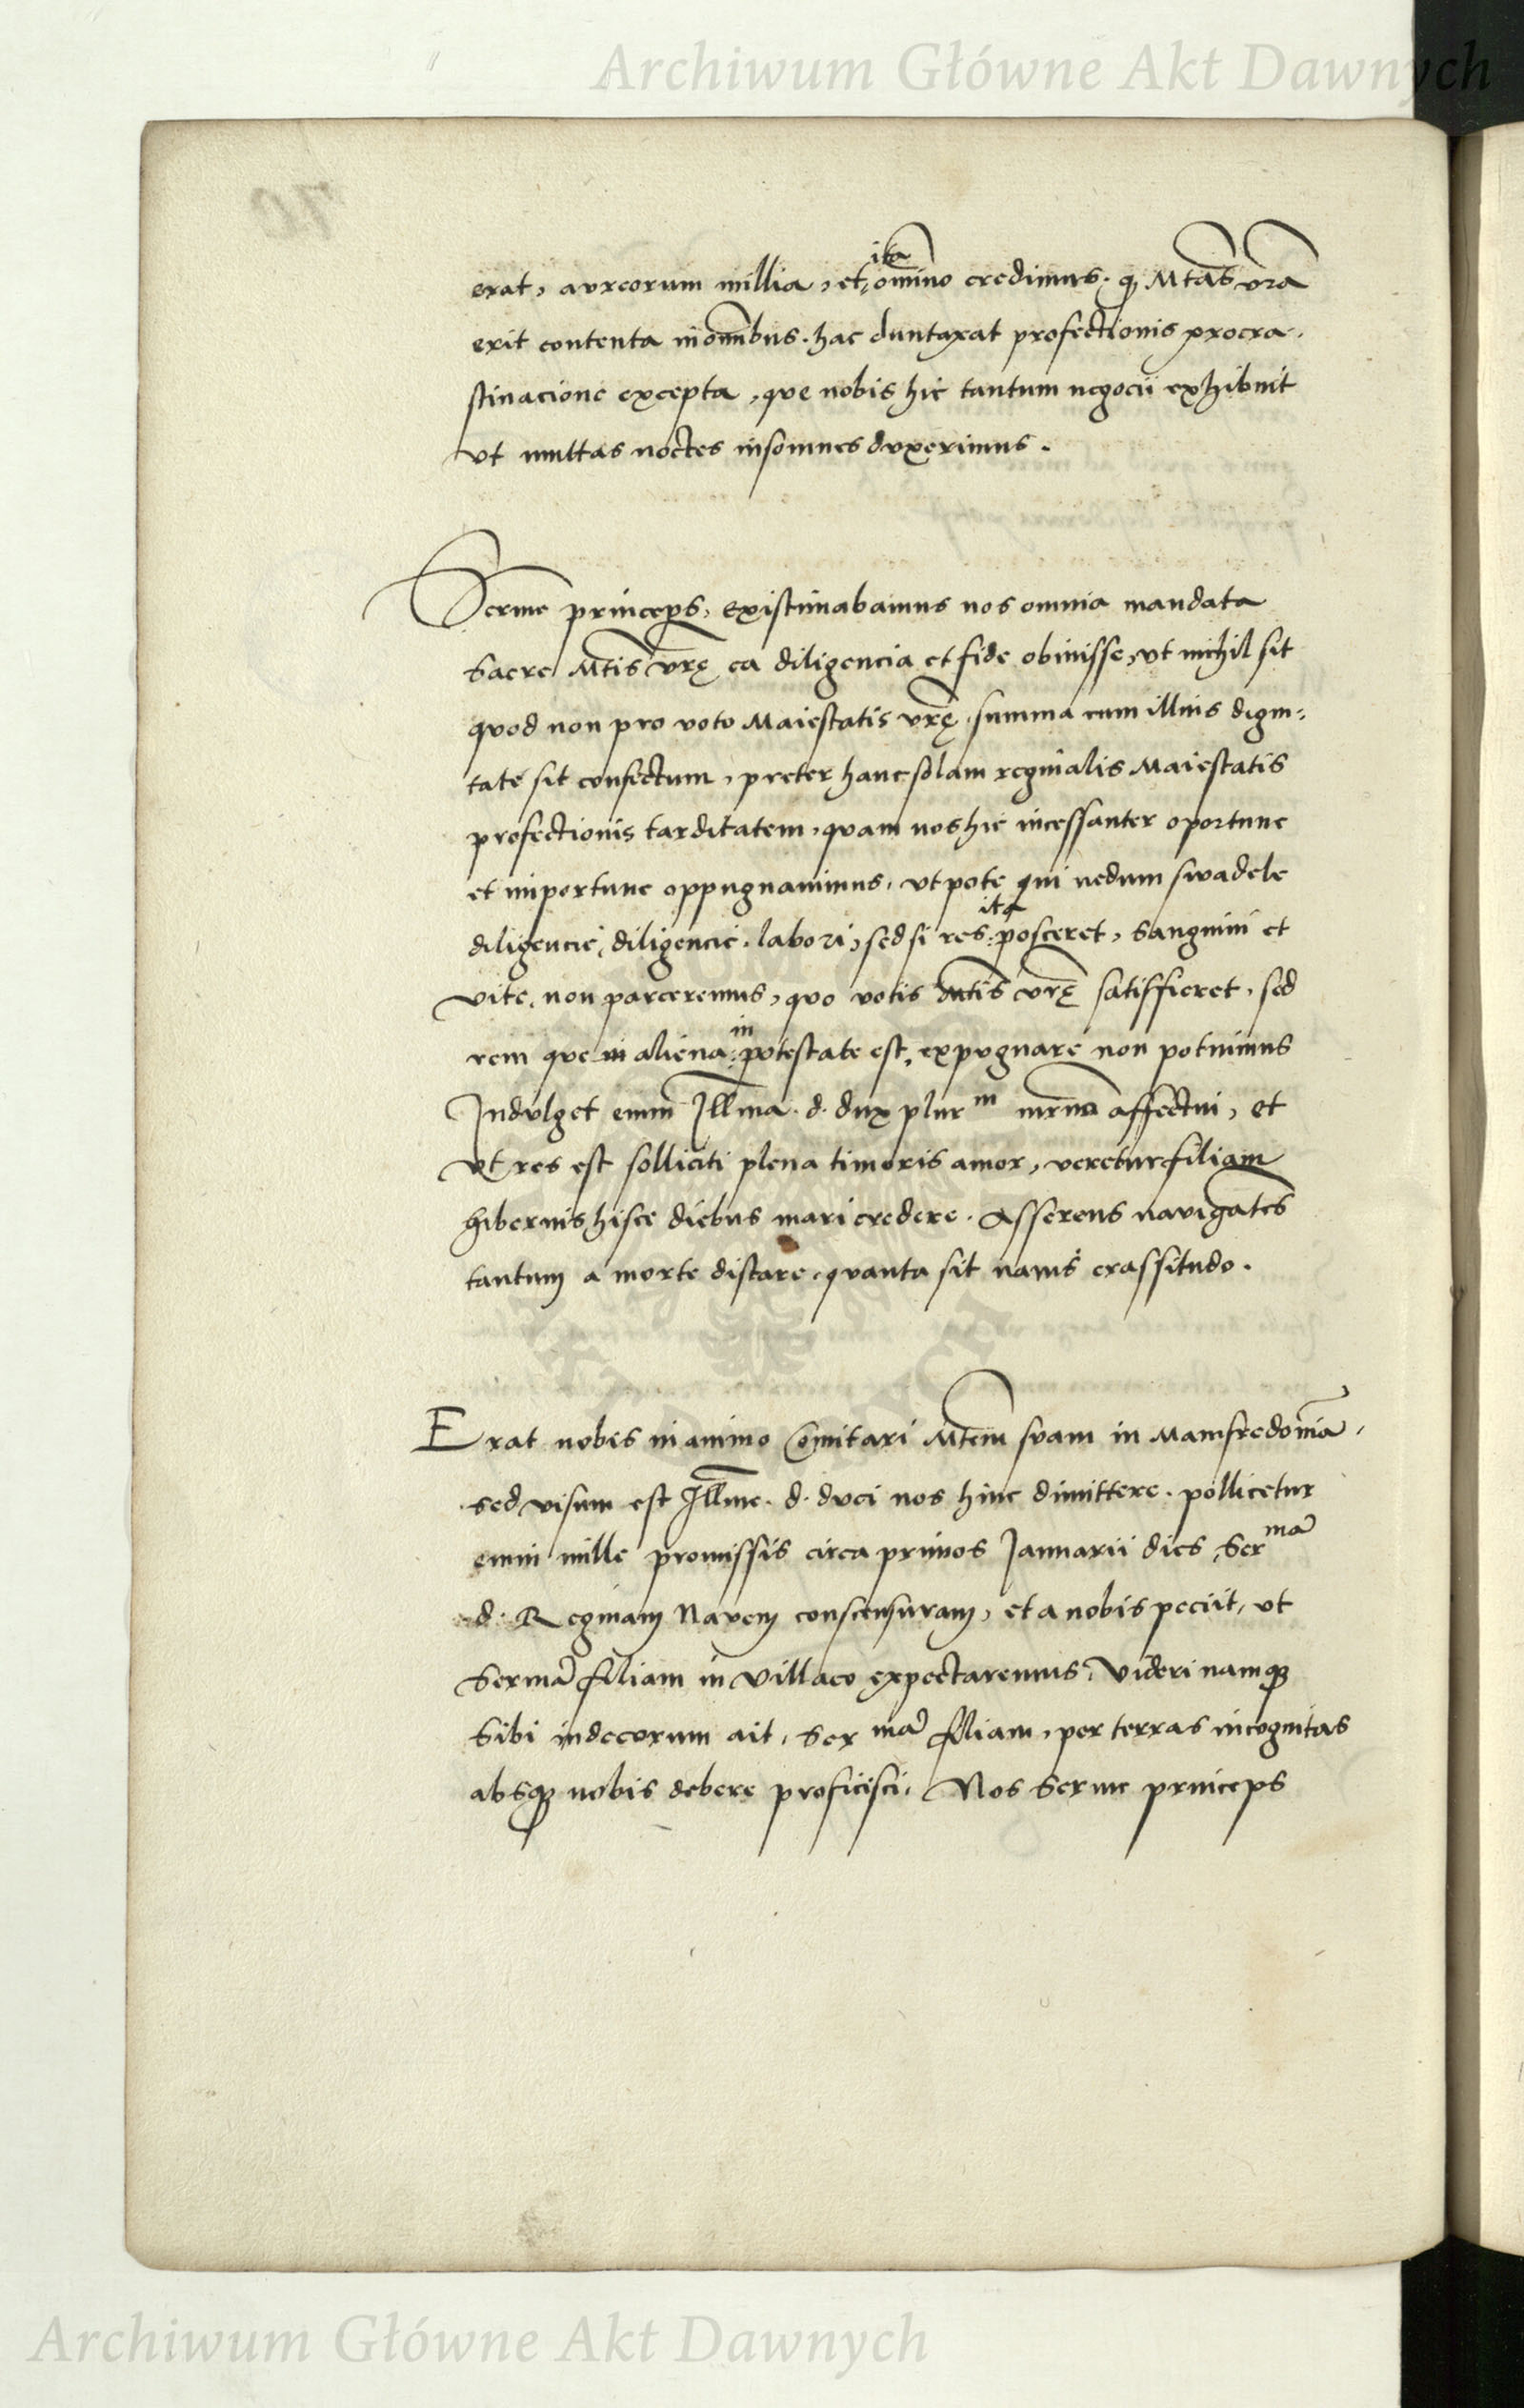 Archiwum Główne Akt Dawnych
erat, aureorum millia, et ita om̄ino credimus, q Mtas vr̄a
erit contenta in om̄ibus. hac duntaxat profectionis procra-
stinacione excepta, que nobis hic tantum negocii exhibuit
vt multas noctes insomnes duxerimus.
Serme princeps, existimabamus nos omnia mandata
Sacre Mtis vrę ea diligencia et fide obiuisse, vt nichil sit
quod non pro voto Maiestatis vrę, summa cum illius digni-
tate sit confectum, preter hanc solam reginalis Maiestatis
profectionis tarditatem, quam nos hic incessanter oportune
et importune oppugnauimus, vt pote qui nedum swadele
diligencie, diligencie, labori, sed si res ita posceret, sanguini et
vite, non parceremus, quo votis Mtis vrę satisfieret, sed
rem que in aliena in potestate est, expugnare non potuimus
Indulget enim Illma. d. dux plurm mrno affectui, et
vt res est solliciti plena timoris amor, veretur filiam
hibernis hisce diebus mari credere. Asserens navigātes
tantum a morte distare, quanta sit nauis crassitudo.
Erat nobis in animo Comitari Mtem suam in Mamfredoniā,
sed visum est Illme. d. duci nos hinc dimittere. pollicetur
enim mille promissis circa primos Januarii dies, Sermā
d. Reginam Navem conscensuram, et a nobis peciit, vt
Sermā filiam in Villaco expectaremus, Videri namq
Sibi indecorum ait, Sermā filiam, per terras incognitas
absq nobis debere proficisci, Nos Serme princeps
Archiwum Główne Akt Dawnych